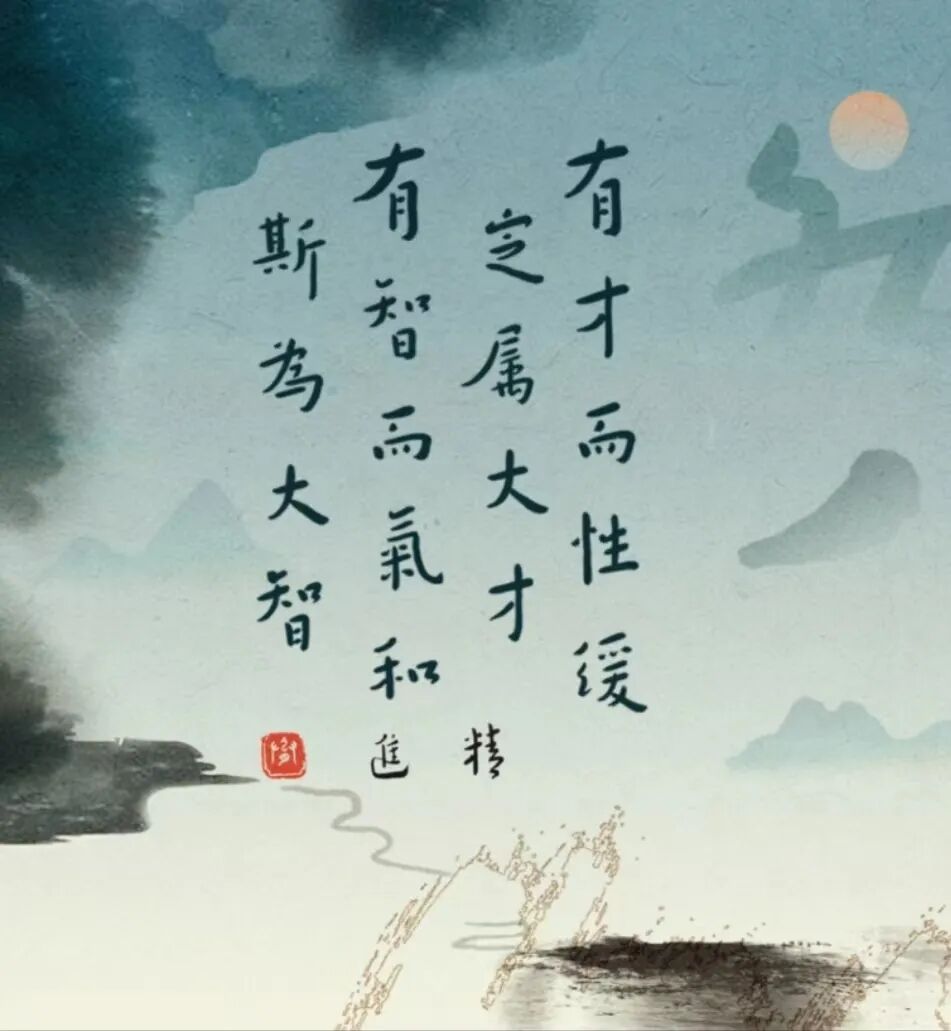 有才而性缓
定属大才
有智而氣和
斯為大智
精
進